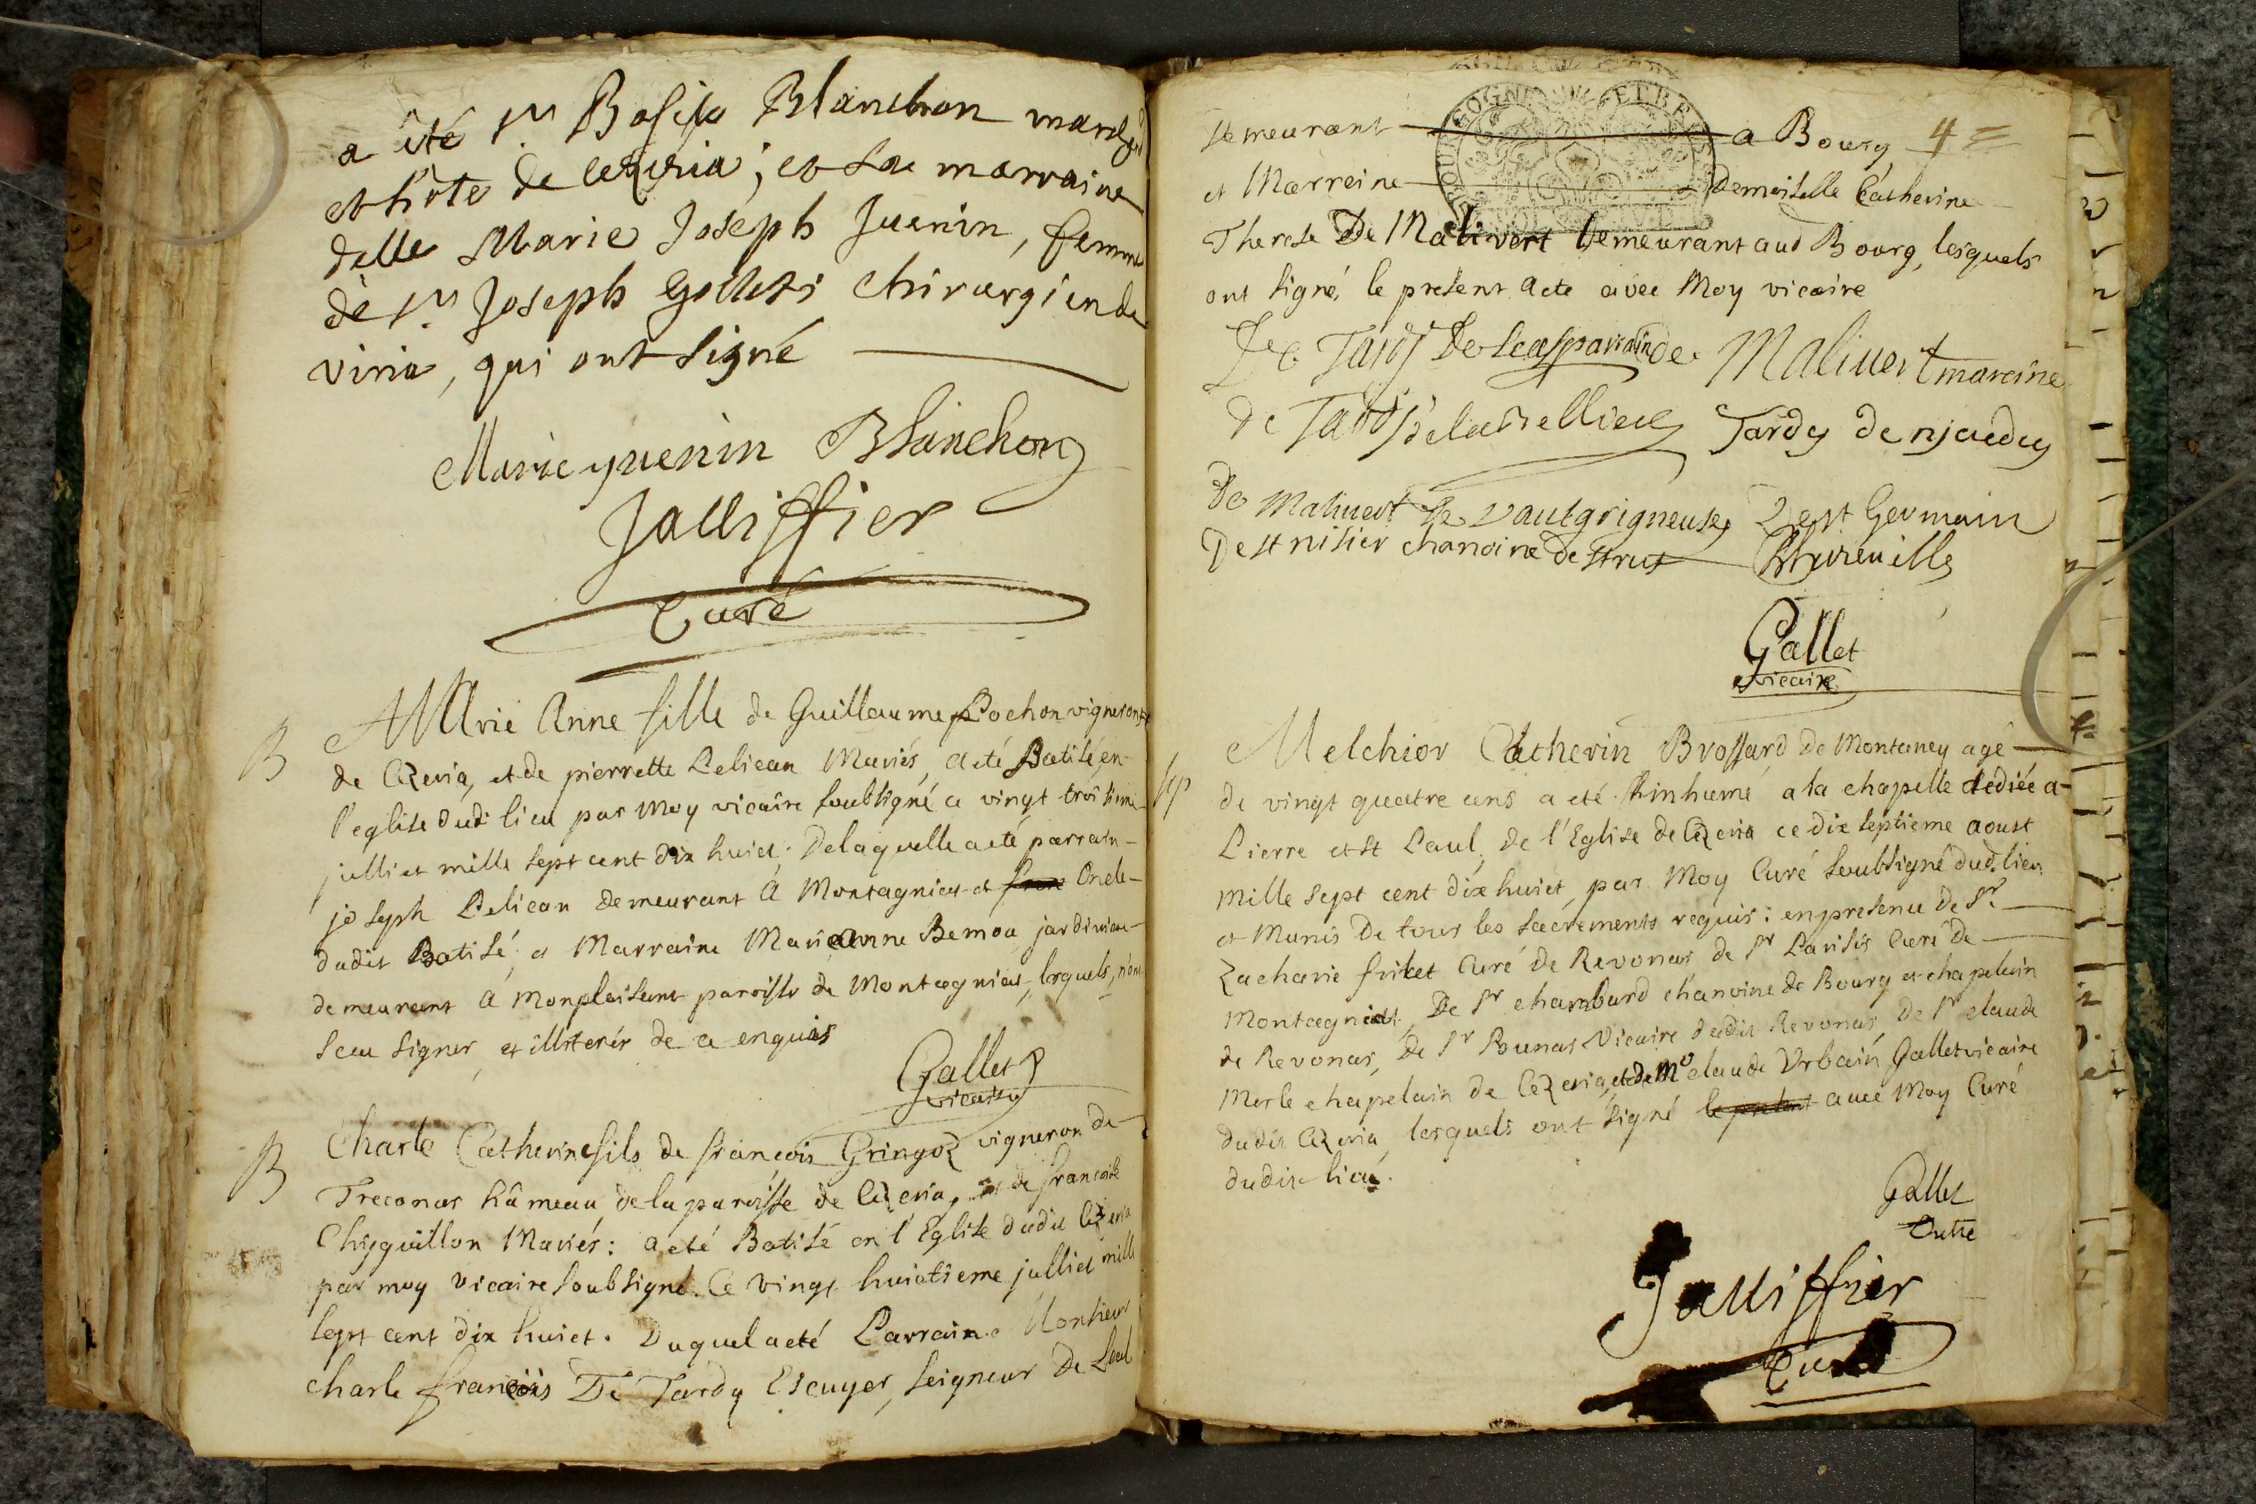 a été Sr. Basile Blanchon marchd
et hôte de ceZeria; et sa marraine
delle Marie Joseph Juenin, femme
de Sr. Joseph Gollety chirurgien de
viria, qui ont signé
Marie yuenin Blanchon
Jalliffier
Curé
B
Marie Anne fille de Guillaume Pochon vigneron
de CeZeria, et de pierrette Pelican Mariés, a eté Batisé en
l'eglise dudi lieu par Moy vicaire soubsigné ce vingt troisieme
julliet mille sept cent dix huict. De laquelle a eté parrain
joseph Pelican demeurant à Montagnieu et Oncle
dudit Batisé, et Marraine Marieanne Bemoa jardiniere
demeurant à Monplaisant paroisse de Montagniat, lesquels n'ont
sceu signer, et illiterés de ce enquis
Gallet
vicaire
B
Charle Catherin fils de françois GringoZ vigneron de
Treconas hâmeau de la paroisse de CeZeria, et de francoise
Chyguillon Mariés: a eté Batisé en l'Eglise dudit CeZeria
par moy vicaire soubsigné. Ce vingt huictieme julliet mille
sept cent dix huict. Duquel a eté Parrain. Monsieur
charle françois De Tardy Escuyer, seigneur De
BOURGOGNE ET BRESSE
demeurant a Bourg 4
et Marreine Demoiselle Catherine
Therese De Malivert demeurant aud Bourg, lesquels
ont signé le present acte avec Moy vicaire
Tardy De parrain de Malivert mareine
De Tardy de la Belliere Tardy de
De Malivert de vautgrigneuse De st Germain
De st nisier chanoine
Gallet
vicaire
Sep
Melchior Catherin Brossard De Montaney agé
de vingt quatre ans a eté Rinhumé a la chapelle dediée a
Pierre et st Paul, de l'Eglise de CeZeria ce dix septieme aoust
mille sept cent dix huict, par Moy Curé soubsigné dud. lieu,
et Munis De tous les sacrements requis: en presence de Sr.
Zacharie friket Curé de Revonas de Sr Parisis Curé De
Montagniat, De Sr chambard chanoine de Bourg et chapelain
de Revonas, De Sr Pounas Vicaire dudit Revonas, De Sr claude
Merle chapelain de CeZeria, et de Mo claude Vrbain Gallet vicaire
dudit CeZeria, lesquels ont signé le present avec Moy Curé
dudit lieu.
Gallet
Jalliffier
Curé